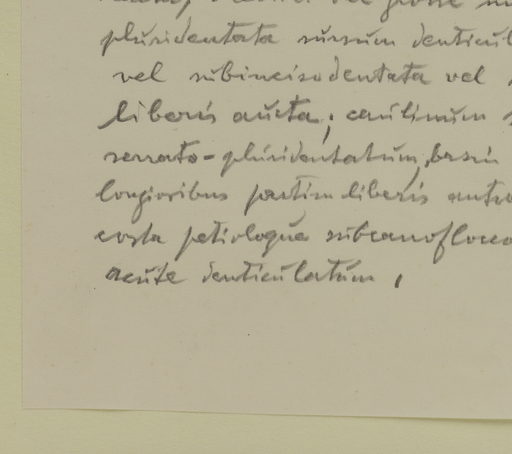 vel grosse
pluridentata sursum denticul
vel subincisodentata vel
liberis aucta; caulinum
serrato-pluridentatum, basin
longioribus partim liberis
costa petioloque subcanoflocco
acute denticulatum,